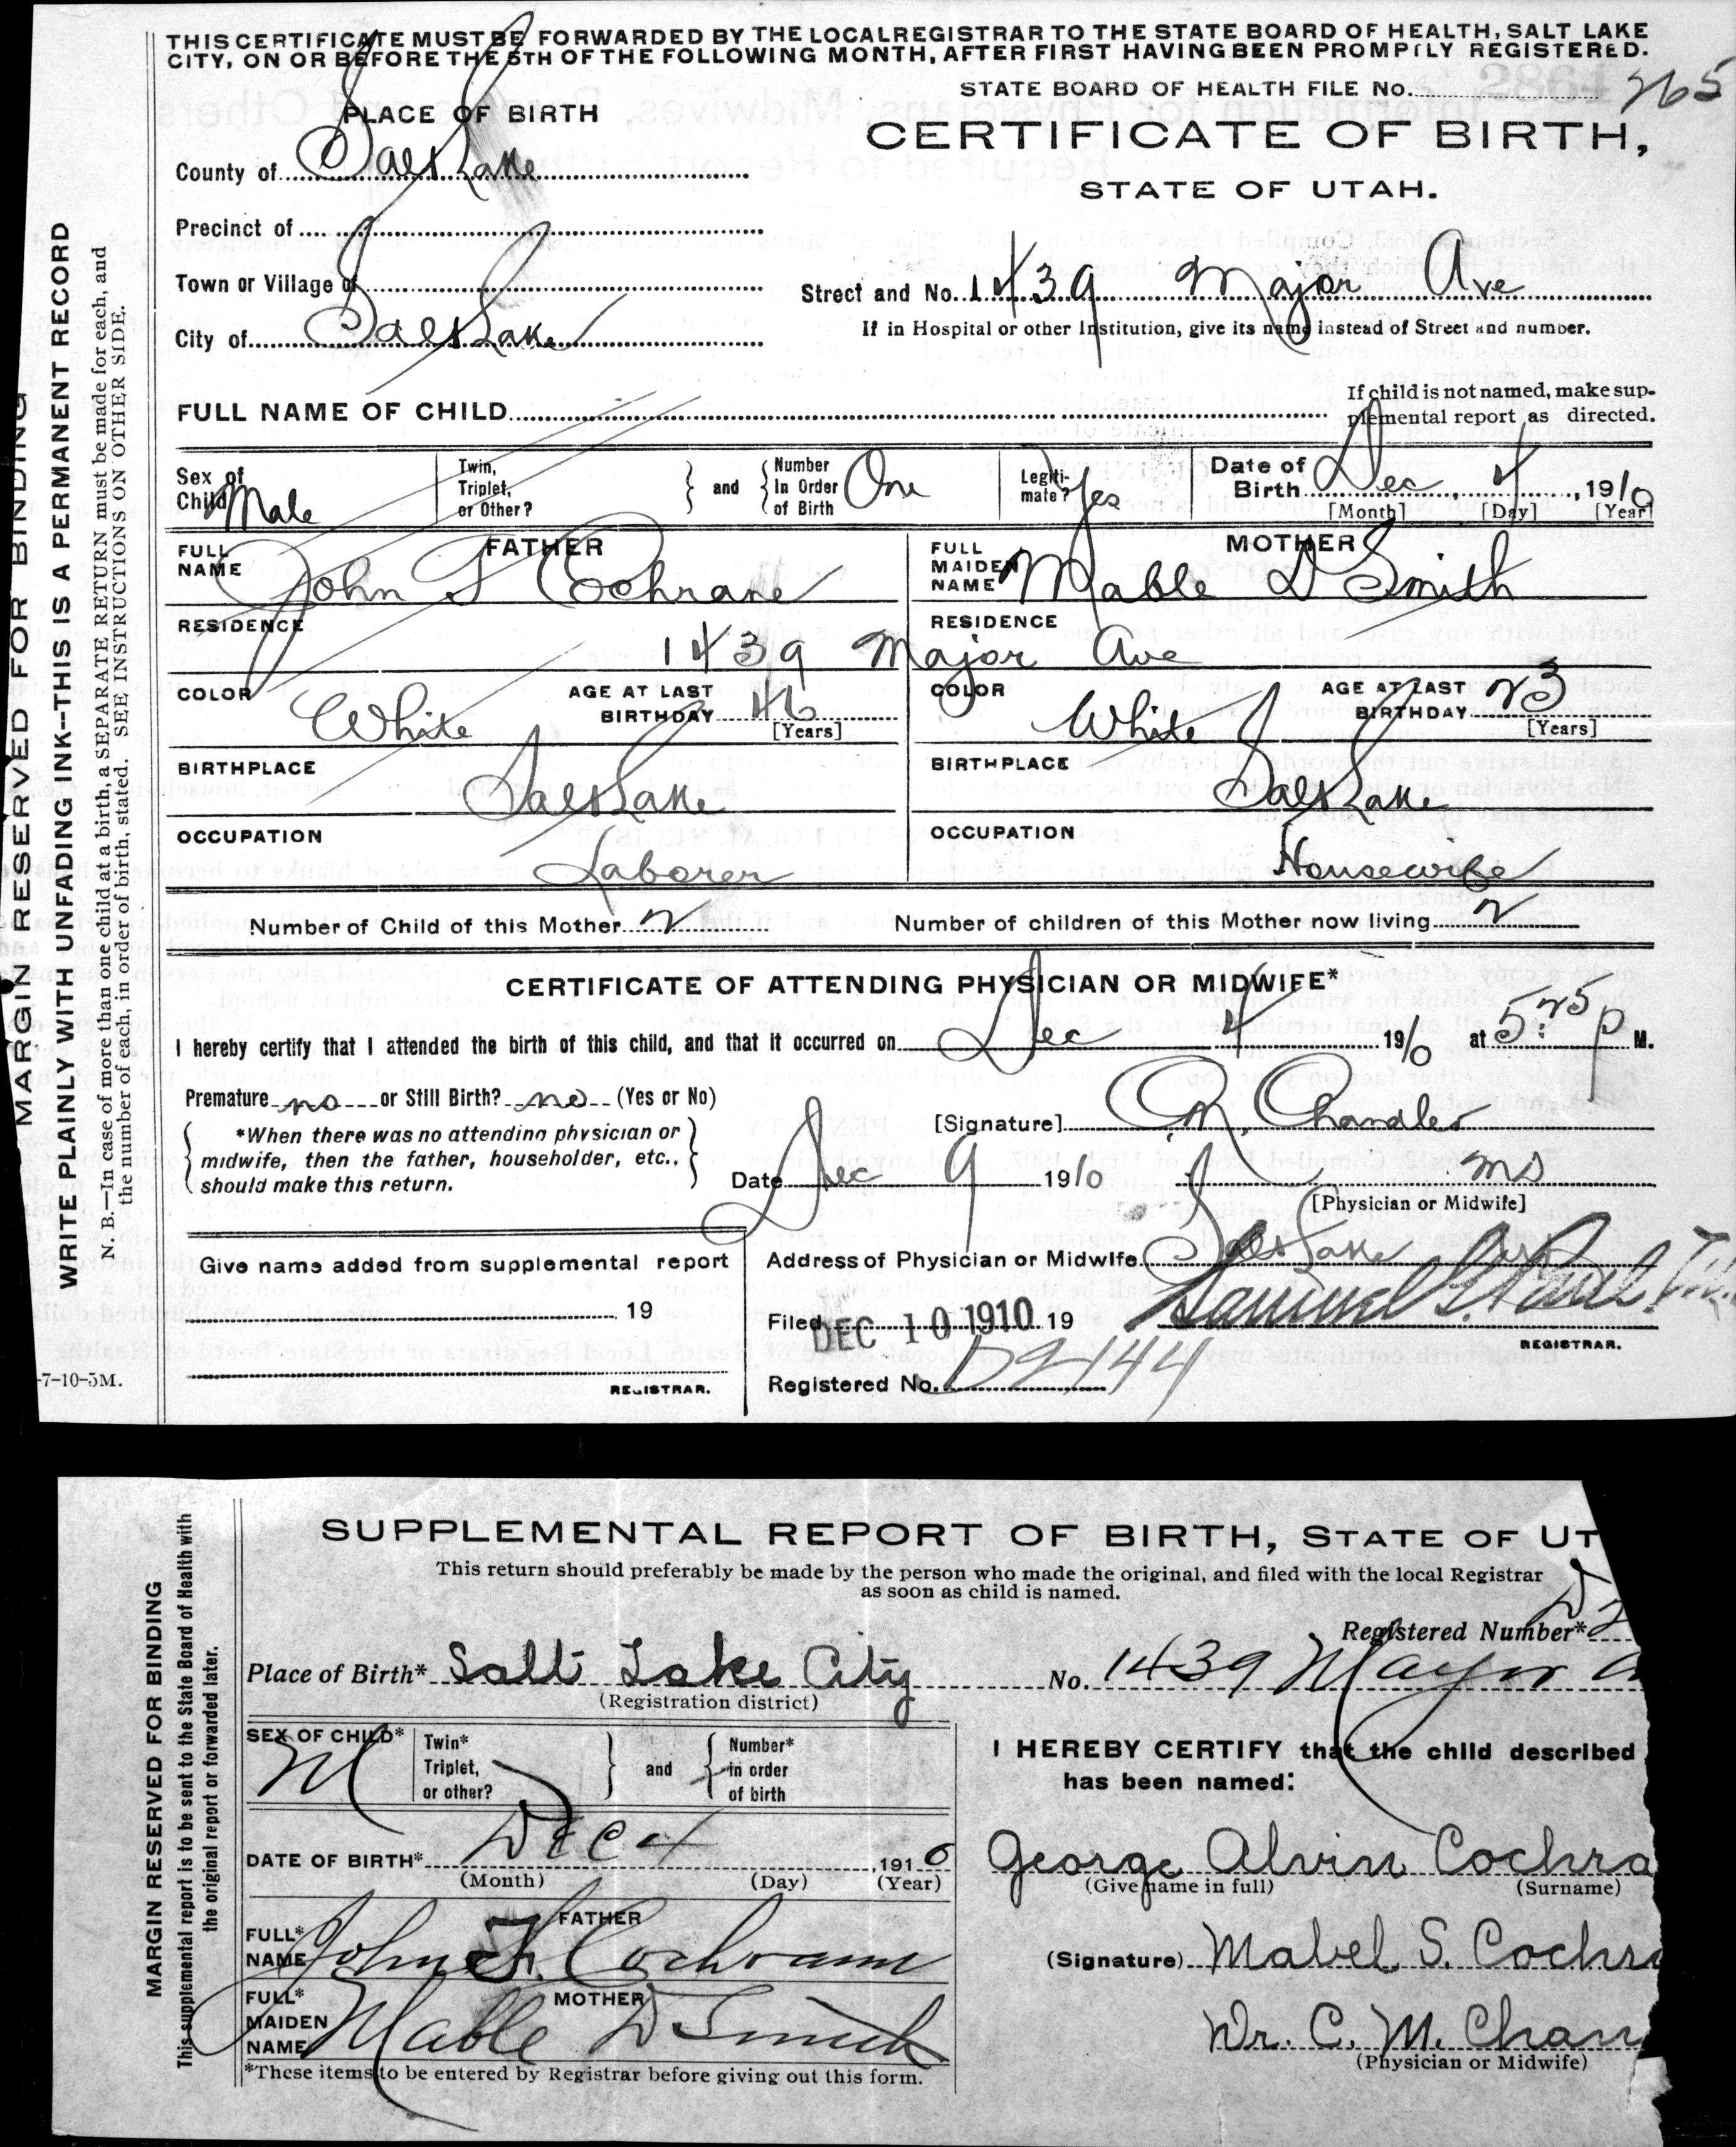 THIS CERTIFICATE MUST BE FORWARDED BY THE LOCAL REGISTRAR TO THE STATE BOARD OF HEALTH, SALT LAKE
CITY, ON OR BEFORE THE 5TH OF THE FOLLOWING MONTH, AFTER FIRST HAVING BEEN PROMPTLY REGISTERED.
STATE BOARD OF HEALTH FILE No. 265
CERTIFICATE OF BIRTH,
STATE OF UTAH.
PLACE OF BIRTH
County of Salt Lake
Precinct of
Town or Village of
City of Salt Lake
Street and No. 1439 Major Ave
If in Hospital or other Institution, give its name instead of Street and number.
FULL NAME OF CHILD
If child is not named, make sup-
plemental report as directed.
Sex of Child Male
Twin, Triplet, or Other?
and
Number In Order of Birth One
Legiti-mate? Yes
Date of Birth Dec 4, 1910
[Month] [Day] [Year]
FATHER
FULL NAME John Cochrane
MOTHER
FULL MAIDEN NAME Mable D Smith
RESIDENCE
RESIDENCE
1439 Major Ave
COLOR White
AGE AT LAST BIRTHDAY
[Years]
COLOR White
AGE AT LAST BIRTHDAY 23
[Years]
BIRTHPLACE Salt Lake
BIRTHPLACE Salt Lake
OCCUPATION Laborer
OCCUPATION Housewife
Number of Child of this Mother 2
Number of children of this Mother now living 2
CERTIFICATE OF ATTENDING PHYSICIAN OR MIDWIFE*
I hereby certify that I attended the birth of this child, and that it occurred on Dec 4 1910 at 5:25 P M.
Premature no or Still Birth? no (Yes or No)
*When there was no attending physician or
midwife, then the father, householder, etc.,
should make this return.
[Signature] Chandler
Date Dec 9 1910 MD
[Physician or Midwife]
Give name added from supplemental report
19
REGISTRAR.
Address of Physician or Midwife Salt Lake
Filed DEC 10 1910 19
REGISTRAR.
Registered No. D2144
7-10-5M.
MARGIN RESERVED FOR BINDING
WRITE PLAINLY WITH UNFADING INK--THIS IS A PERMANENT RECORD
N. B.—In case of more than one child at a birth, a SEPARATE RETURN must be made for each, and
the number of each, in order of birth, stated. SEE INSTRUCTIONS ON OTHER SIDE.
SUPPLEMENTAL REPORT OF BIRTH, STATE OF UT
This return should preferably be made by the person who made the original, and filed with the local Registrar
as soon as child is named.
Registered Number* D2
Place of Birth* Salt Lake City
(Registration district)
No. 1439 Mayor a
SEX OF CHILD* M
Twin* Triplet, or other?
and
Number* in order of birth
DATE OF BIRTH* DEC 4 1910
(Month) (Day) (Year)
FATHER
FULL* NAME John Cochrane
MOTHER
FULL* MAIDEN NAME Mable D Smith
*These items to be entered by Registrar before giving out this form.
I HEREBY CERTIFY that the child described
has been named:
George Alvin Cochra
(Give name in full) (Surname)
(Signature) Mabel S. Cochra
Dr. C. M. Chan
(Physician or Midwife)
MARGIN RESERVED FOR BINDING
This supplemental report is to be sent to the State Board of Health with
the original report or forwarded later.